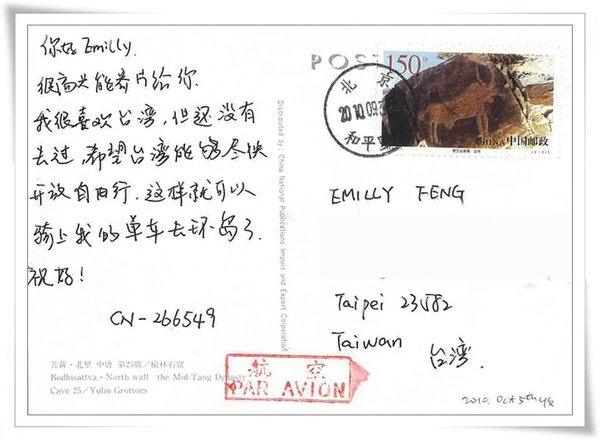 你好 Emilly.
很高兴能寄片给你.
我很喜欢台湾,但还没有
去过,希望台湾能够尽快
开放自由行.这样就可以
骑上我的单车去环岛了.
祝好!
CN-266549
菩薩・北壁 中唐 第25窟/榆林石窟
Bodhisattva・North wall the Mid-Tang Dynasty
Cave 25/Yulin Grottoes
Distributed by: China National Publications Import and Export Corporation
POS
150
CHINA 中国邮政
北京
2010.09.
和平里
EMILLY FENG
Taipei 23582
Taiwan
台湾.
航空
PAR AVION
2010. Oct 5th